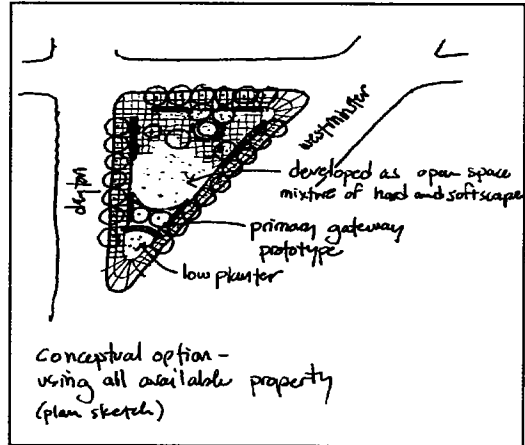 westminster
developed as open space
mixture of hard and softscape
dayton
primary gateway
prototype
low planter
conceptual option -
using all available property
(plan sketch)